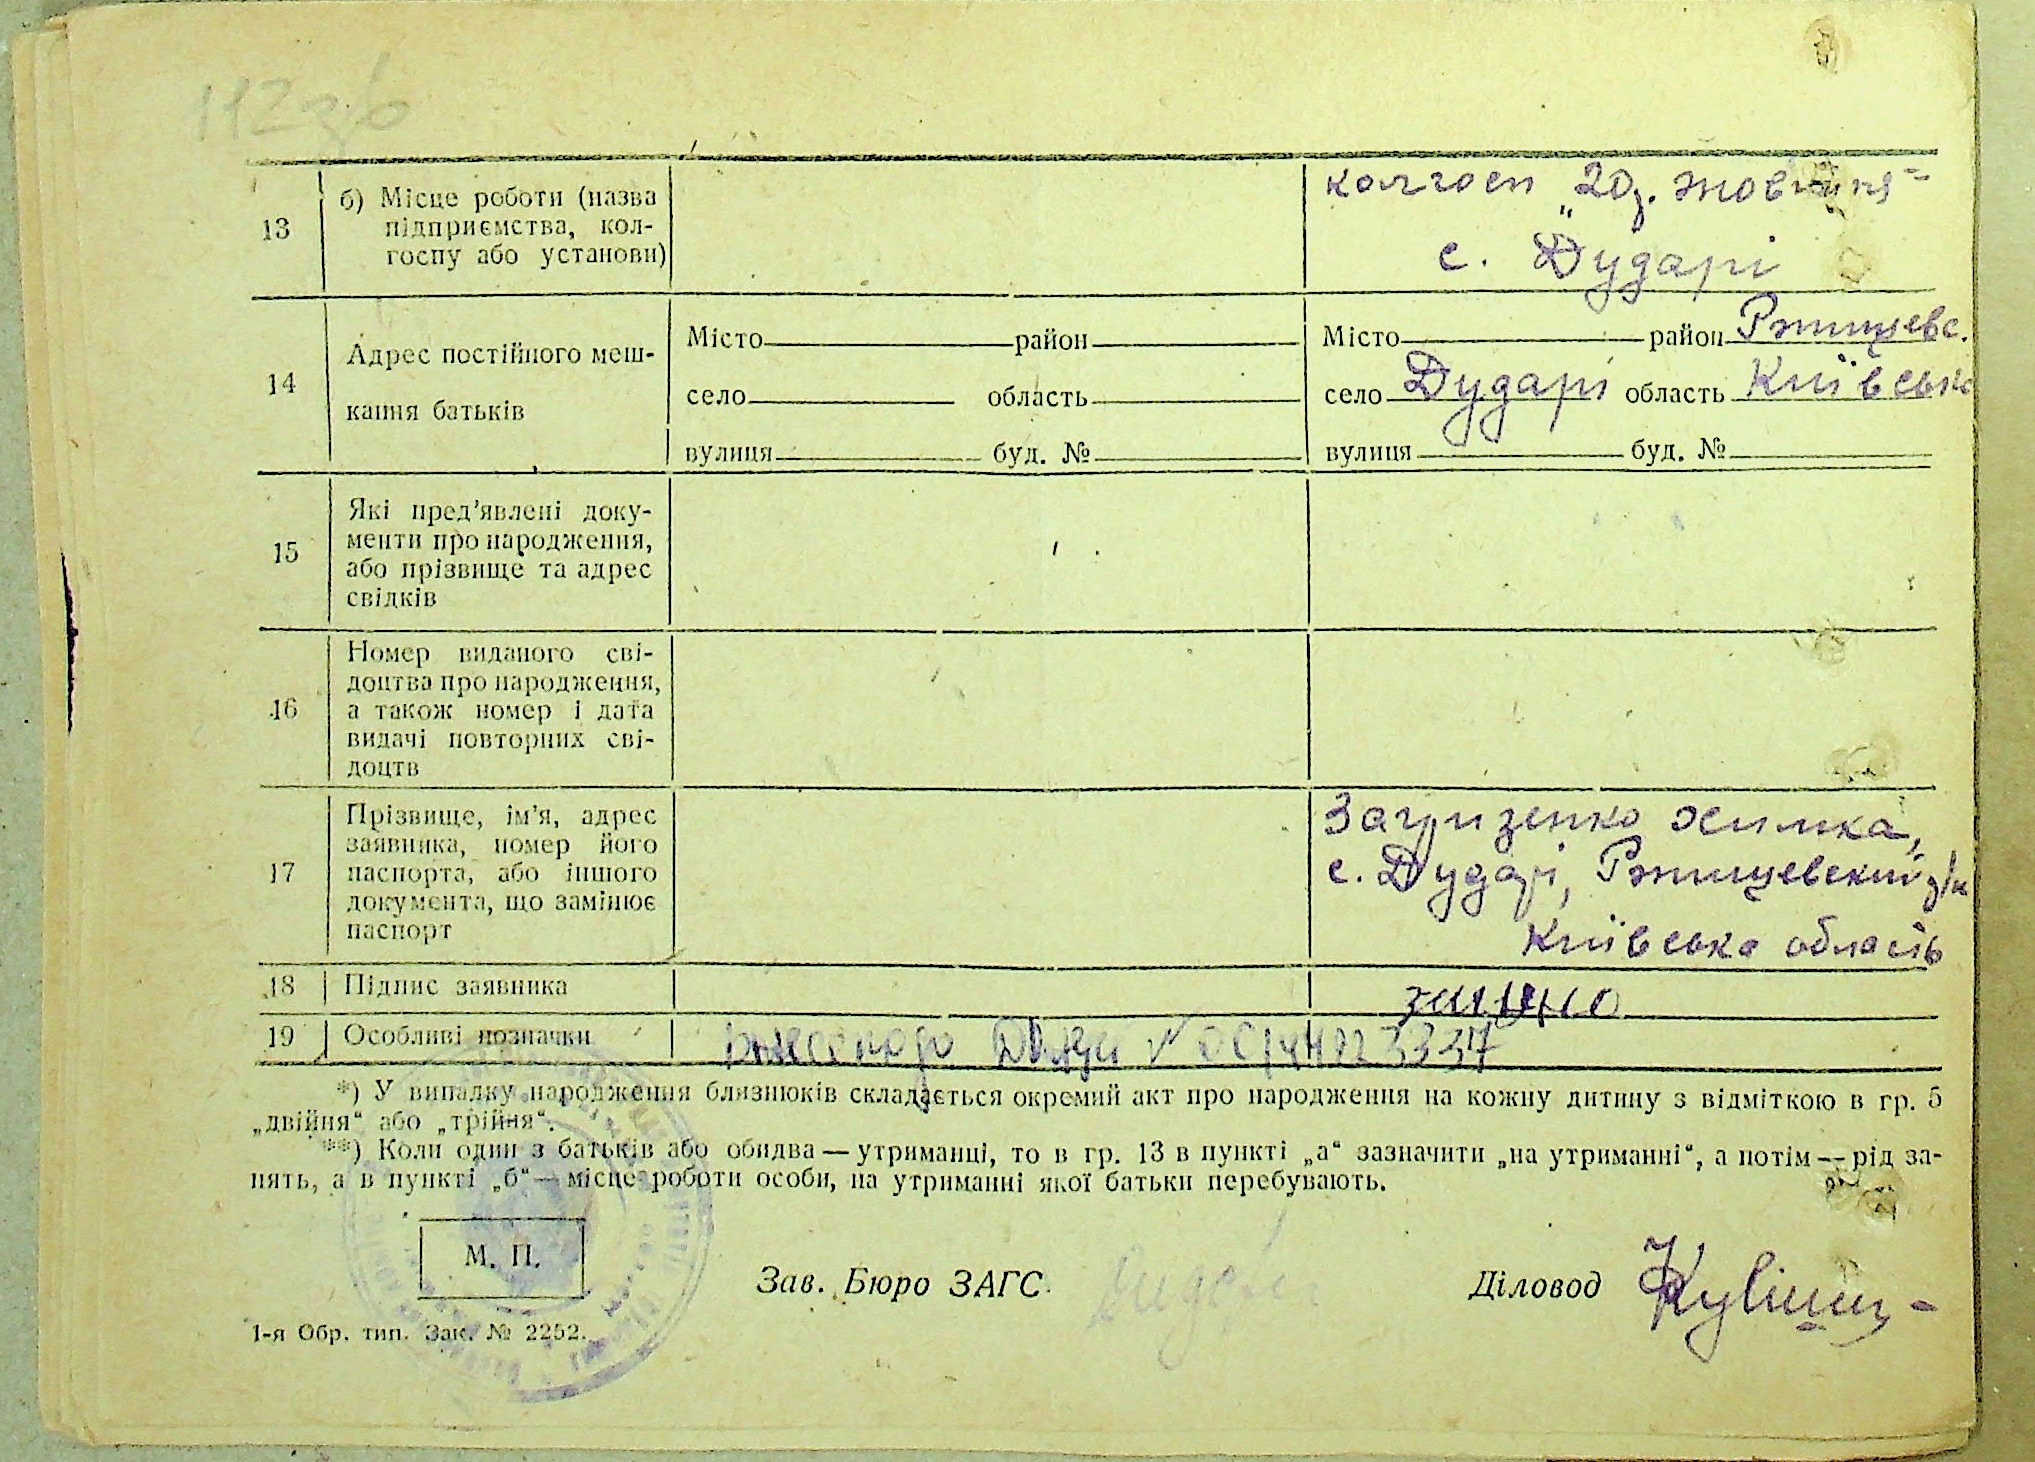 112зв
13
б) Місце роботи (назва
підприємства, кол-
госпу або установи)
колгосп „20р. жовтня"
с. Дударі
14
Адрес постійного меш-
кання батьків
Місто район
село область
вулиця буд. №
Місто район Ржищевс.
село Дударі область Київська
вулиця буд. №
15
Які пред'явлені доку-
менти про народження,
або прізвище та адрес
свідків
16
Номер виданого сві-
доцтва про народження,
а також номер і дата
видачі повторних сві-
доцтв
17
Прізвище, ім'я, адрес
заявника, номер його
паспорта, або іншого
документа, що замінює
паспорт
Химка,
с. Дударі, Ржищевский р/н
Київська область
18
Підпис заявника
19
Особливі позначки
*) У випадку народження близнюків складається окремий акт про народження на кожну дитину з відміткою в гр. 5
„двійня“ або „трійня“.
**) Коли один з батьків або обидва — утриманці, то в гр. 13 в пункті „а“ зазначити „на утриманні“, а потім — рід за-
нять, а в пункті „б“ — місце роботи особи, на утриманні якої батьки перебувають.
М. П.
Зав. Бюро ЗАГС
Діловод
1-я Обр. тип. Зак. № 2252.